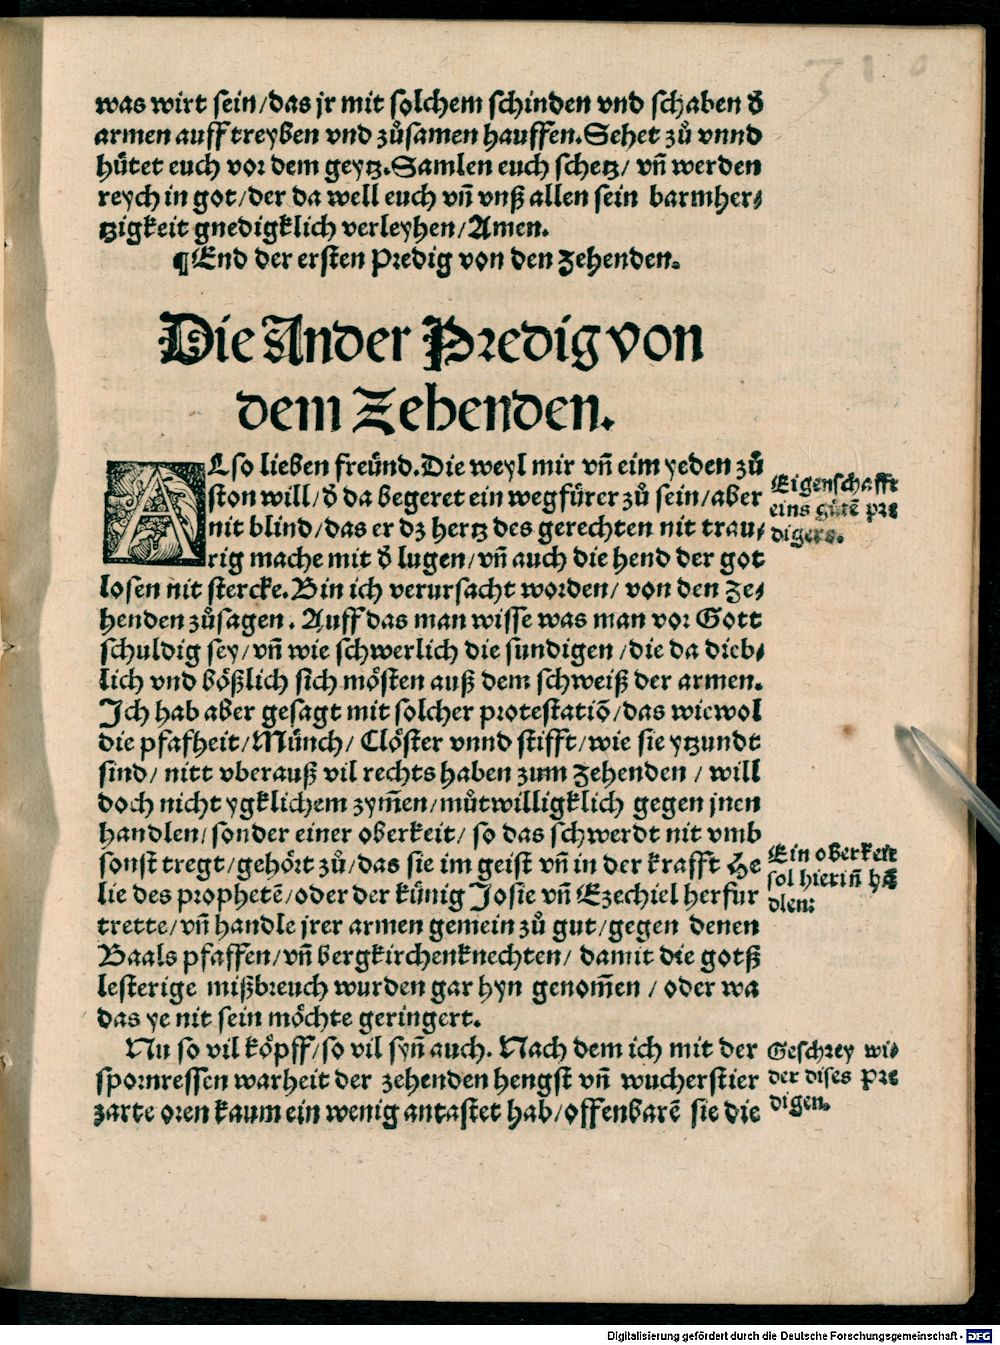 was wirt sein/das jr mit solchem schinden vnd schaben d̕
armen auff treyben vnd zůsamen hauffen. Sehet zů vnnd
hütet euch vor dem geytz. Samlen euch schetz/ vñ werden
reych in got/der da well euch vñ vnß allen sein barmher⸗
tzigkeit gnedigklich verleyhen/Amen.
¶End der ersten Predig von den Zehenden.
Die Ander Predig von
dem Zehenden.
ALso lieben freünd. Die weyl mir vñ eim yeden zů
ston will/d̕ da begeret ein wegfürer zů sein/aber
nit blind/das er dz hertz des gerechten nit trau⸗
rig mache mit d̕ lugen/vñ auch die hend der got
losen nit stercke. Bin ich verursacht worden/ von den Ze⸗
henden zůsagen. Auff das man wisse was man vor Gott
schuldig sey/vñ wie schwerlich die sundigen/die da dieb⸗
lich vnd bößlich sich mösten auß dem schweiß der armen.
Ich hab aber gesagt mit solcher protestatiō/das wiewol
die pfafheit/Münch/ Clöster vnnd stifft/wie sie ytzundt
sind/ nitt vberauß vil rechts haben zum Zehenden / will
doch nicht ygklichem zym̃en/můtwilligklich gegen jnen
handlen/sonder einer oberkeit/ so das schwerdt nit vmb
sonst tregt/gehört zů/das sie im geist vñ in der krafft He
lie des prophetē/oder der künig Josie vñ Ezechiel herfur
trette/vñ handle jrer armen gemein zů gut/gegen denen
Baals pfaffen/vñ bergkirchenknechten/ damit die gotß
lesterige mißbreuch wurden gar hyn genom̃en / oder wa
das ye nit sein möchte geringert.
Nu so vil köpff/so vil syñ auch. Nach dem ich mit der
spornressen warheit der zehenden hengst vñ wucherstier
zarte oren kaum ein wenig antastet hab/offenbarē sie die
Eigenschafft
eins gůtē pre
digers.
Ein oberkeit
sol hieriñ hā
dlen:
Geschrey wi⸗
der dises Pre
digen.
310
Digitalisierung gefördert durch die Deutsche Forschungsgemeinschaft - DFG